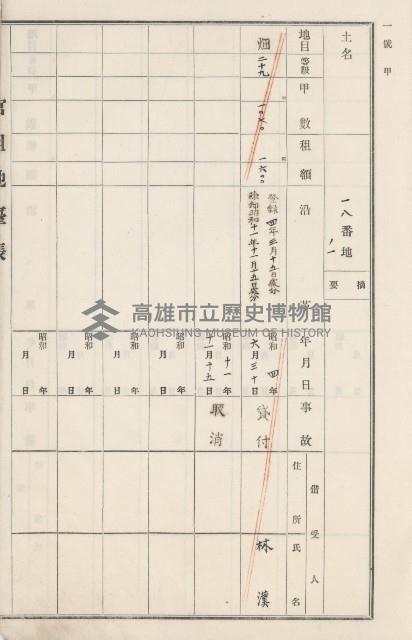 一號甲
土名
一八番地ノ一
摘要
地目 等級 甲數 租額 沿革 年月日 事故 借受人 住所 氏名
畑 二十九 一〇七〇 一六〇〇
登錄 四年三月十五日處分
除却 昭和十一年十一月十五日處分
昭和四年六月三十日 貸付 林漢
昭和十一年十一月十五日 取消
昭和 年 月 日
昭和 年 月 日
昭和 年 月 日
昭和 年 月 日
官租地臺帳
高雄市立歷史博物館
KAOHSIUNG MUSEUM OF HISTORY